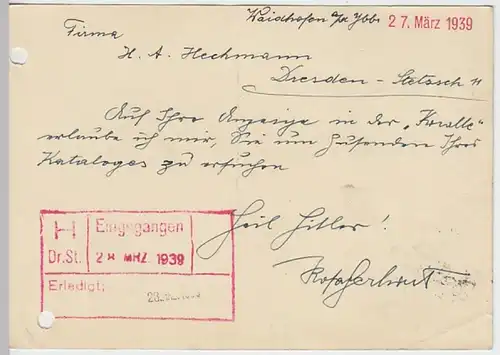 Waidhofen a/d Ybbs 27. März 1939
Firma
H. A. Heckmann
Dresden - Stetzsch 11
Auf Ihre Anzeige in der „Koralle"
erlaube ich mir, Sie um Zusenden Ihres
Kataloges zu ersuchen
Heil Hitler!
H Eingegangen
Dr.St. 28. MRZ. 1939
Erledigt: